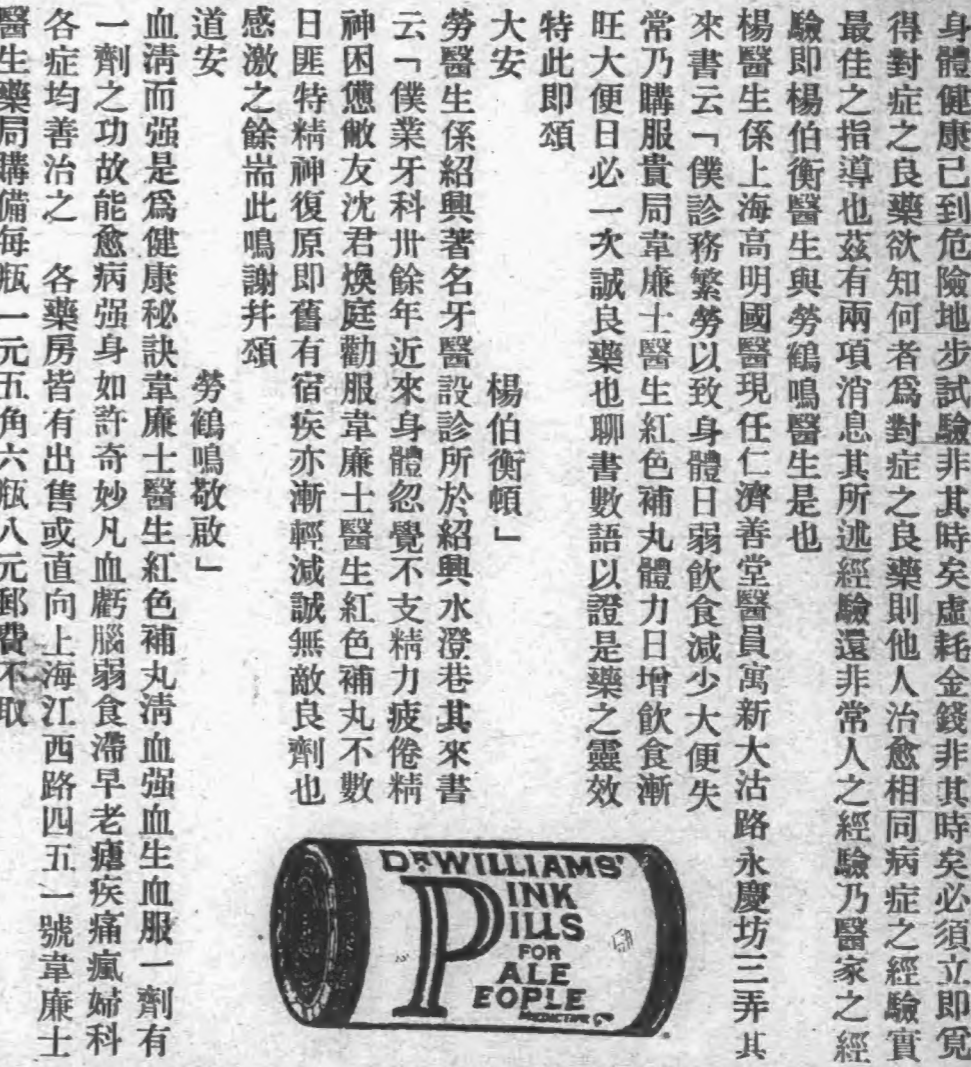 身體健康已到危險地步試驗非其時矣虛耗金錢非其時矣必須立即覓
得對症之良藥欲知何者爲對症之良藥則他人治愈相同病症之經驗實
最佳之指導也茲有兩項消息其所述經驗還非常人之經驗乃醫家之經
驗即楊伯衡醫生與勞鶴鳴醫生是也
楊醫生係上海高明國醫現任仁濟善堂醫員寓新大沽路永慶坊三弄其
來書云「僕診務繁勞以致身體日弱飲食減少大便失
常乃購服貴局韋廉士醫生紅色補丸體力日增飲食漸
旺大便日必一次誠良藥也聊書數語以證是藥之靈效
特此即頌
大安 楊伯衡頓」
勞醫生係紹興著名牙醫設診所於紹興水澄巷其來書
云「僕業牙科卅餘年近來身體忽覺不支精力疲倦精
神困憊敝友沈君煥庭勸服韋廉士醫生紅色補丸不數
日匪特精神復原即舊有宿疾亦漸輕減誠無敵良劑也
感激之餘耑此鳴謝并頌
道安 勞鶴鳴敬啟」
血清而强是爲健康秘訣韋廉士醫生紅色補丸清血强血生血服一劑有
一劑之功故能愈病强身如許奇妙凡血虧腦弱食滯早老瘧疾痛瘋婦科
各症均善治之 各藥房皆有出售或直向上海江西路四五一號韋廉士
醫生藥局購備每瓶一元五角六瓶八元郵費不取
DR WILLIAMS'
PINK
PILLS
FOR
PALE
PEOPLE